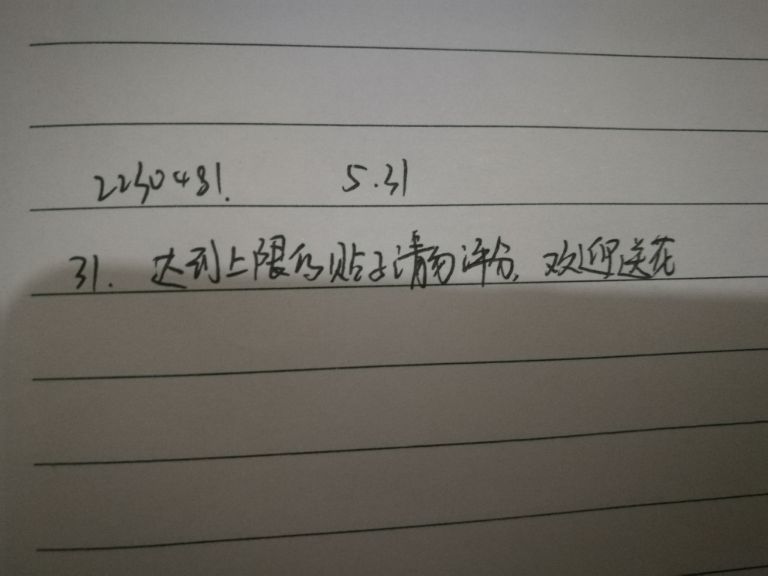 2230481. 5.31
31. 达到上限的贴子请勿评分, 欢迎送花